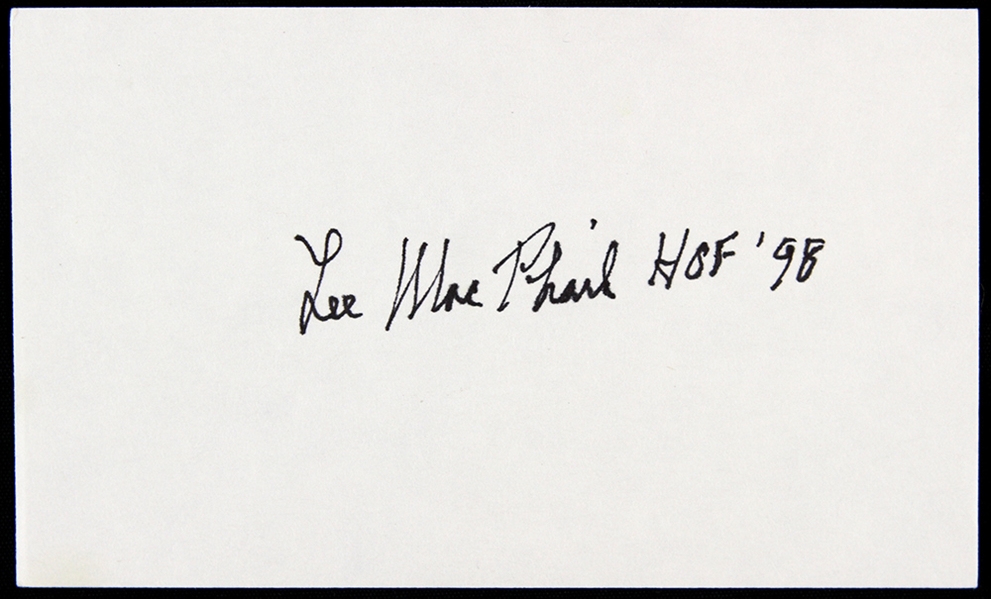 Lee MacPhail HOF '98